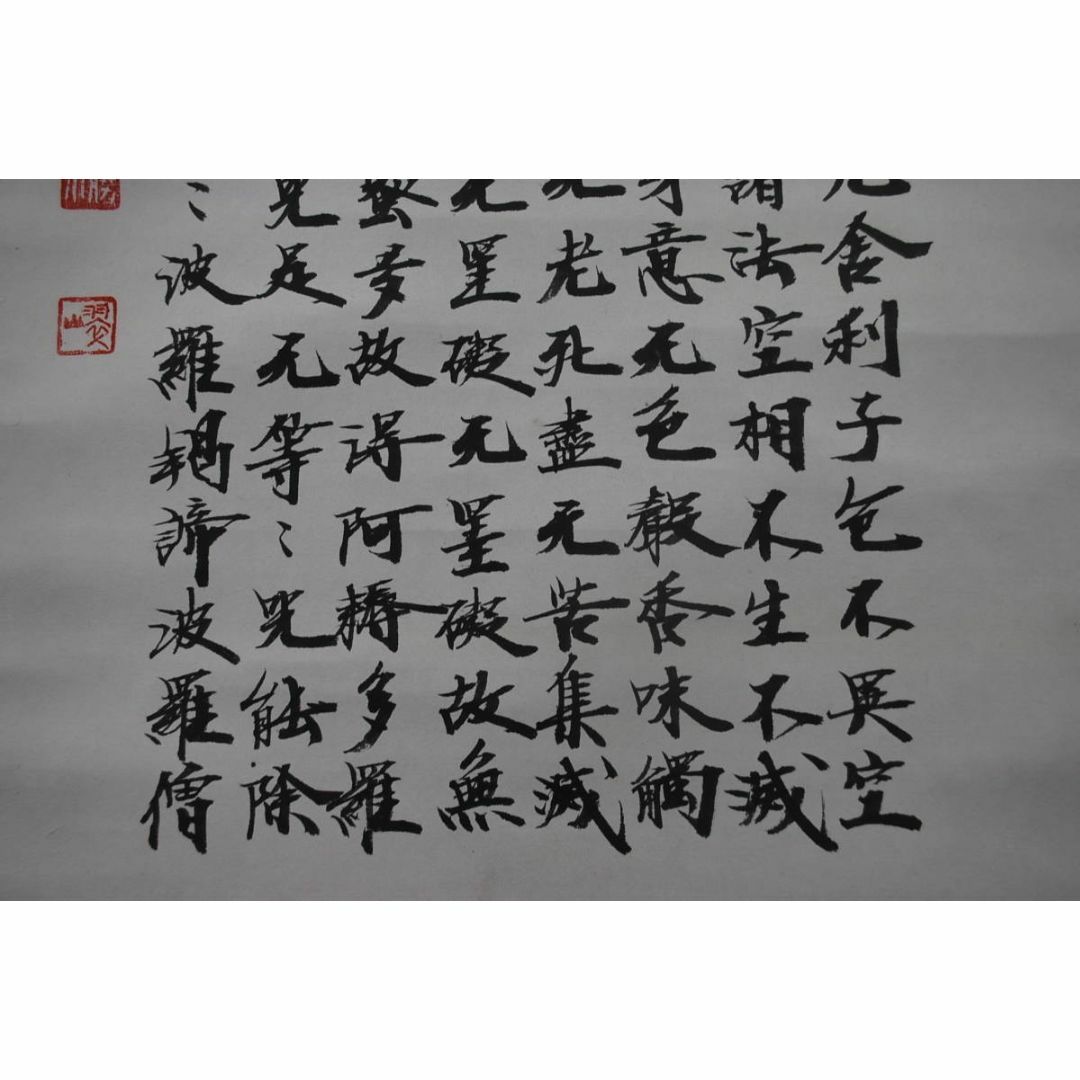 厄舍利子色不異空
諸法空相不生不滅
身意无色聲香味觸
无老死盡无苦集滅
无罣礙无罣礙故無
藐多故得阿耨多羅
咒是无等〻咒能除
〻波羅揭諦波羅僧